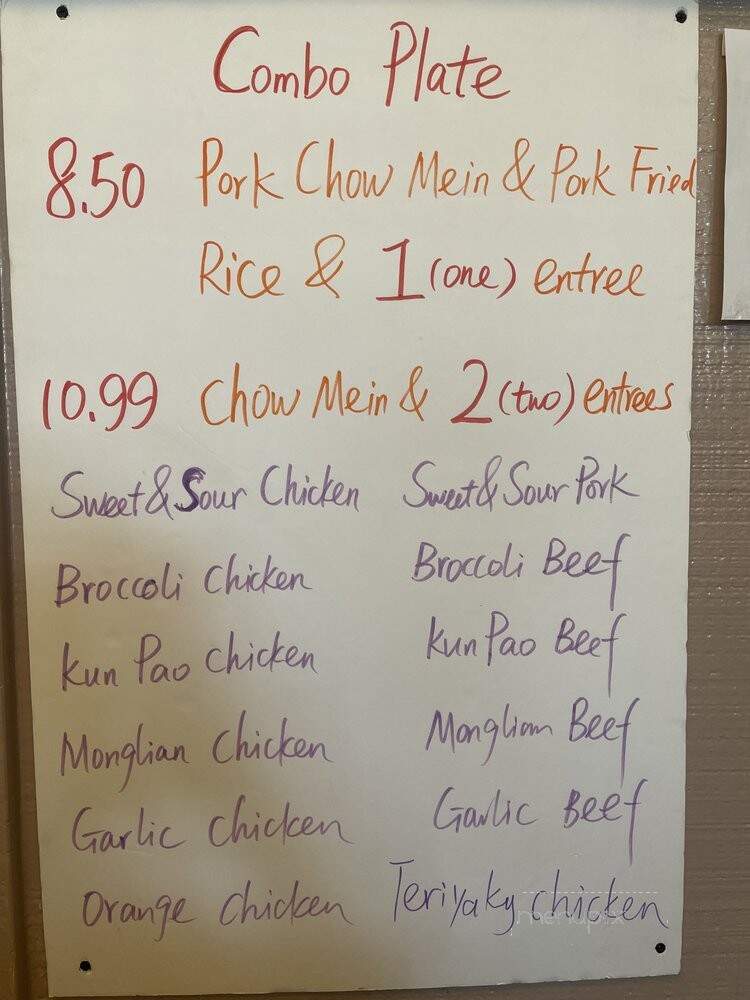 Combo Plate
8.50 Pork Chow Mein & Pork Fried
Rice & 1 (one) entree
10.99 Chow Mein & 2 (two) entrees
Sweet & Sour Chicken Sweet & Sour Pork
Broccoli Chicken Broccoli Beef
Kun Pao Chicken Kun Pao Beef
Monglian Chicken Monglian Beef
Garlic Chicken Garlic Beef
Orange Chicken Teriyaky chicken
menupix